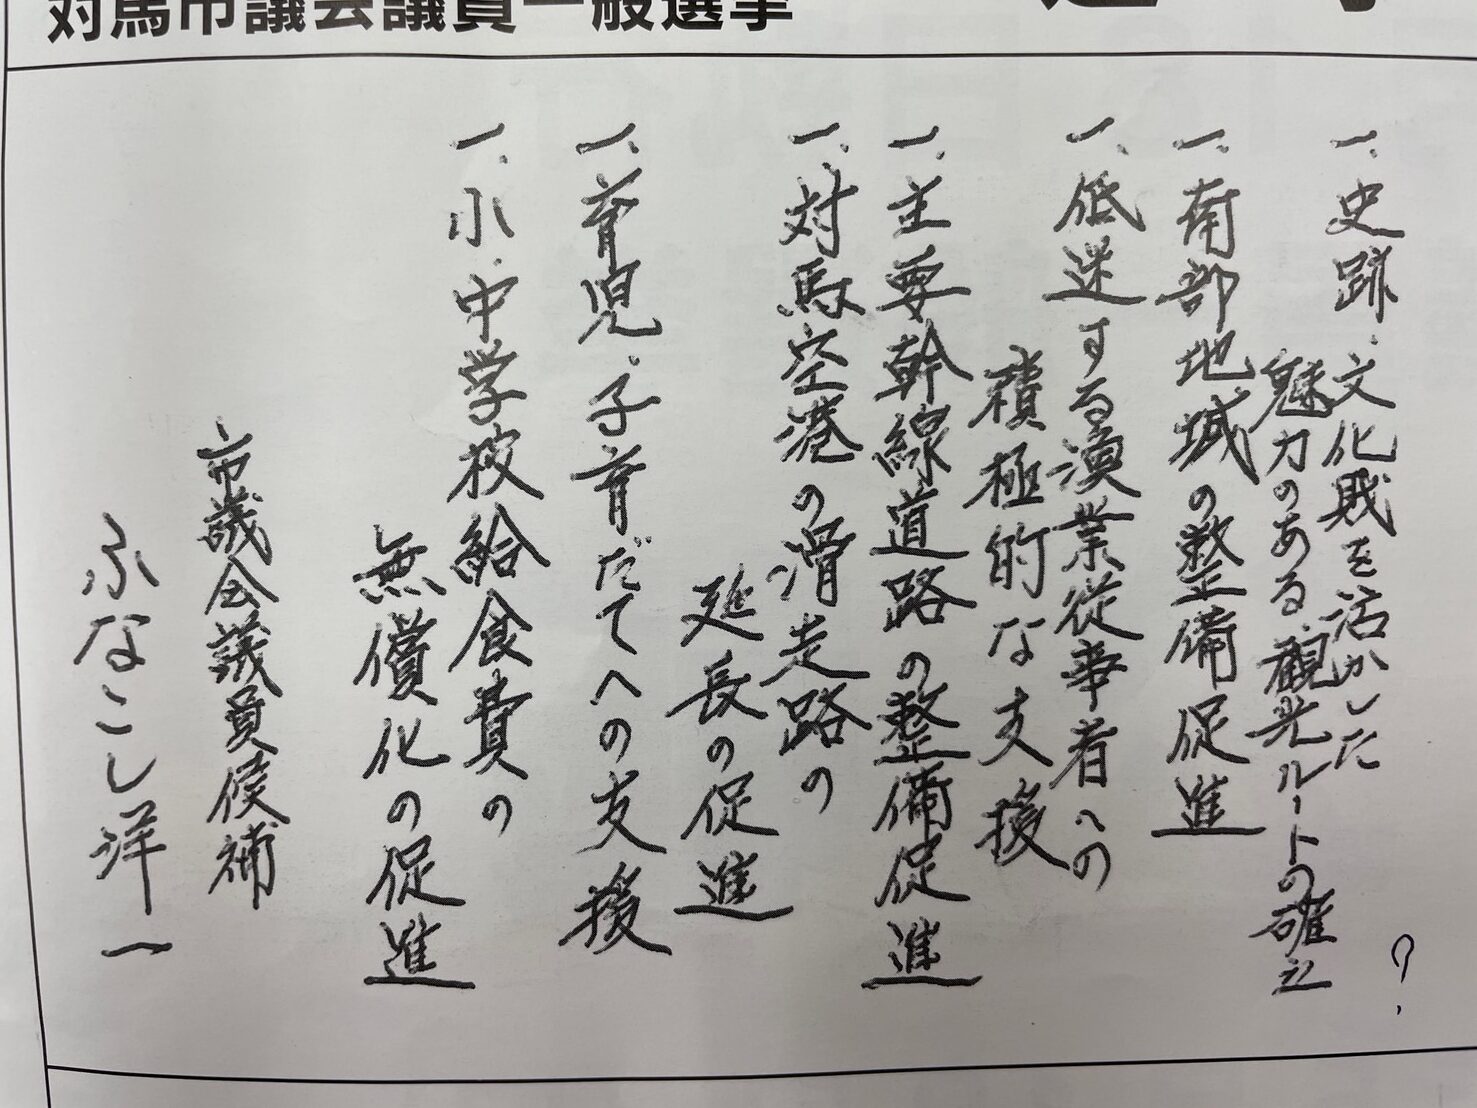 対馬市議会議員一般選挙
一、史跡・文化財を活かした
魅力のある観光ルートの確立
?
一、南部地域の整備促進
一、低迷する漁業従事者への
積極的な支援
一、主要幹線道路の整備促進
一、対馬空港の滑走路の
延長の促進
一、育児・子育だてへの支援
一、小・中学校給食費の
無償化の促進
市議会議員候補
ふなこし洋一